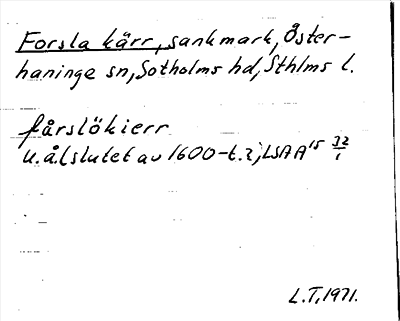 Forsla kärr, sankmark, Öster-
haninge sn, Sotholms hd, Sthlms l.
fårslökierr
u.å. (slutet av 1600-t.?; LSA A 15 32/1
L.T. 1971.